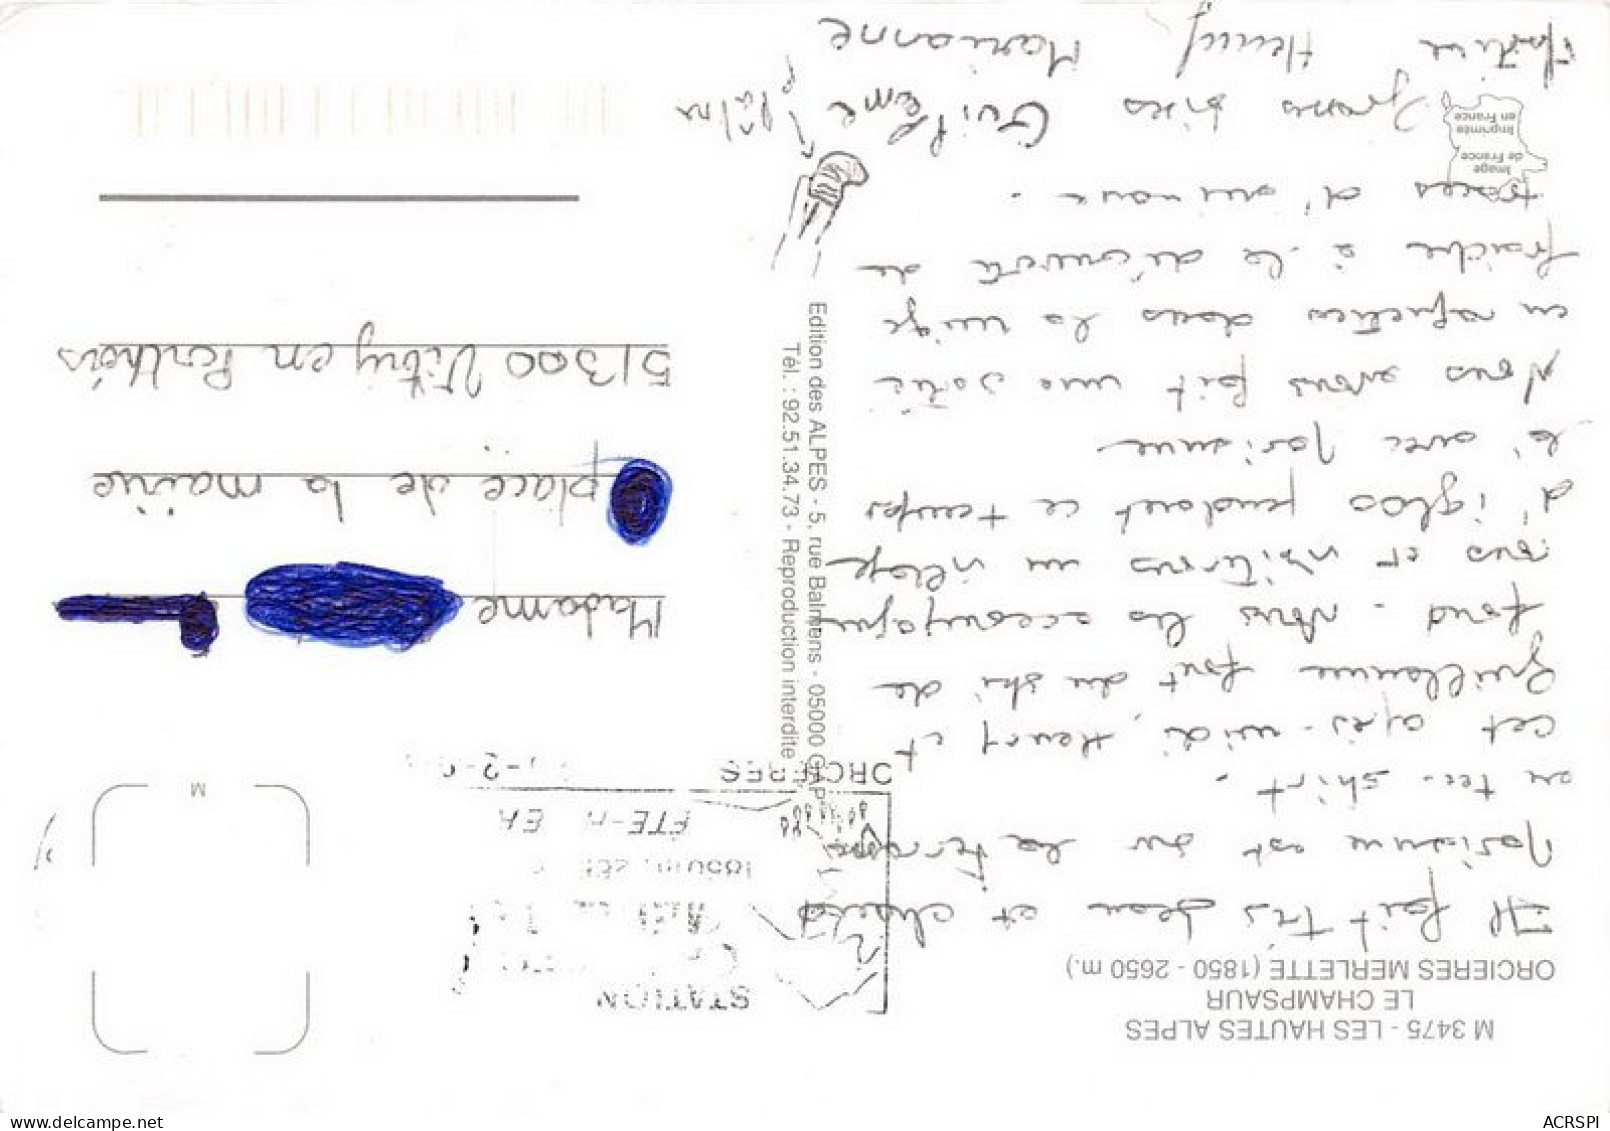 M 3475 - LES HAUTES ALPES
LE CHAMPSAUR
ORCIERES MERLETTE (1850 - 2650 m.)
Il fait très beau et chaud
Marianne est sur la terrasse
en tee-shirt.
Cet après-midi, Henry et
Guillaume font du ski de
fond. Nous les accompagnons
et visiterons un village
d'igloo pendant ce temps
là avec Marianne
Nous avons fait une sortie
en raquettes dans la neige
fraîche à la découverte de
traces d'animaux.
Grosses bises
Guillaume
Martine Henry Marianne
Image
de France
Imprimée
en France
Edition des ALPES - 5, rue Balmens - 05000 GAP
Tél. : 92.51.34.73 - Reproduction interdite
STATION
1850 m
ORCIERES
M
Madame
place de la mairie
51300 Vitry en Perthois
ACRSPI
www.delcampe.net